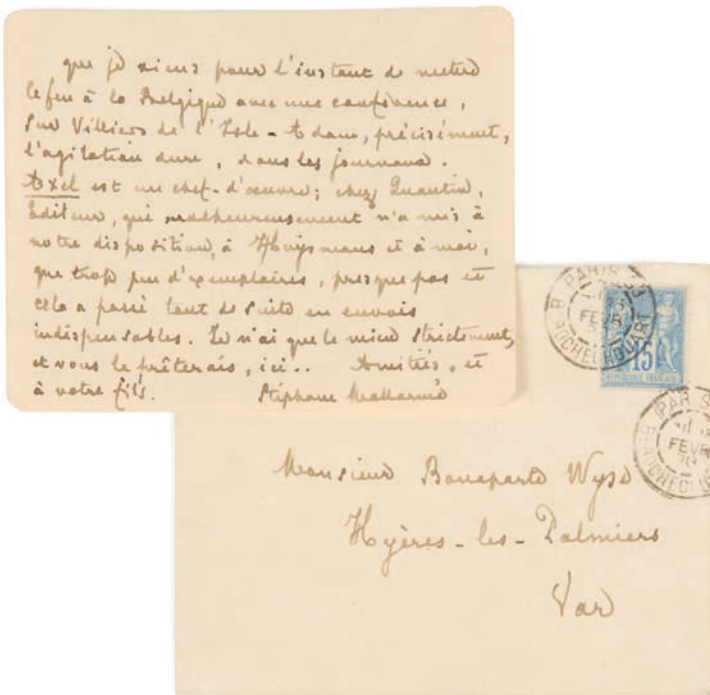 que je viens pour l'instant de mettre
le feu à la Belgique avec une conférence,
sur Villiers de l'Isle-Adam, précisément,
l'agitation dure, dans les journaux.
Axel est un chef-d'œuvre; chez Quantin,
Editeur, qui malheureusement n'a mis à
notre disposition, à Huysmans et à moi,
que trop peu d'exemplaires, presque pas et
cela a passé tout de suite en envois
indispensables. Je n'ai que le mien strictement,
et vous le prêterais, ici.. Amitiés, et
à votre fils. Stéphane Mallarmé
PARIS
FEVR
R. ROCHECHOUART
15
REPUBLIQUE FRANCAISE
PARIS
FEVR
90
Monsieur Bonaparte Wyse
Hyères-les-Palmiers
Var